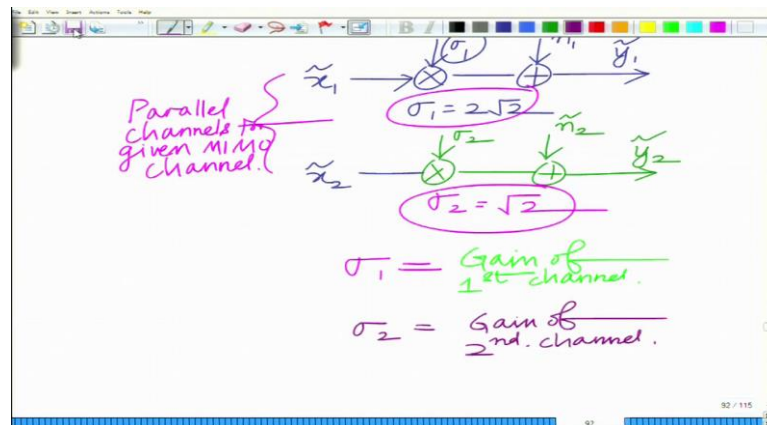 File Edit View Insert Actions Tools Help
σ₁ n₁
x̃₁ ỹ₁
σ₁ = 2√2
Parallel
channels for
given MIMO
channel.
σ₂ ñ₂
x̃₂ ỹ₂
σ₂ = √2
σ₁ = Gain of
1st channel.
σ₂ = Gain of
2nd. channel.
92 / 115
92